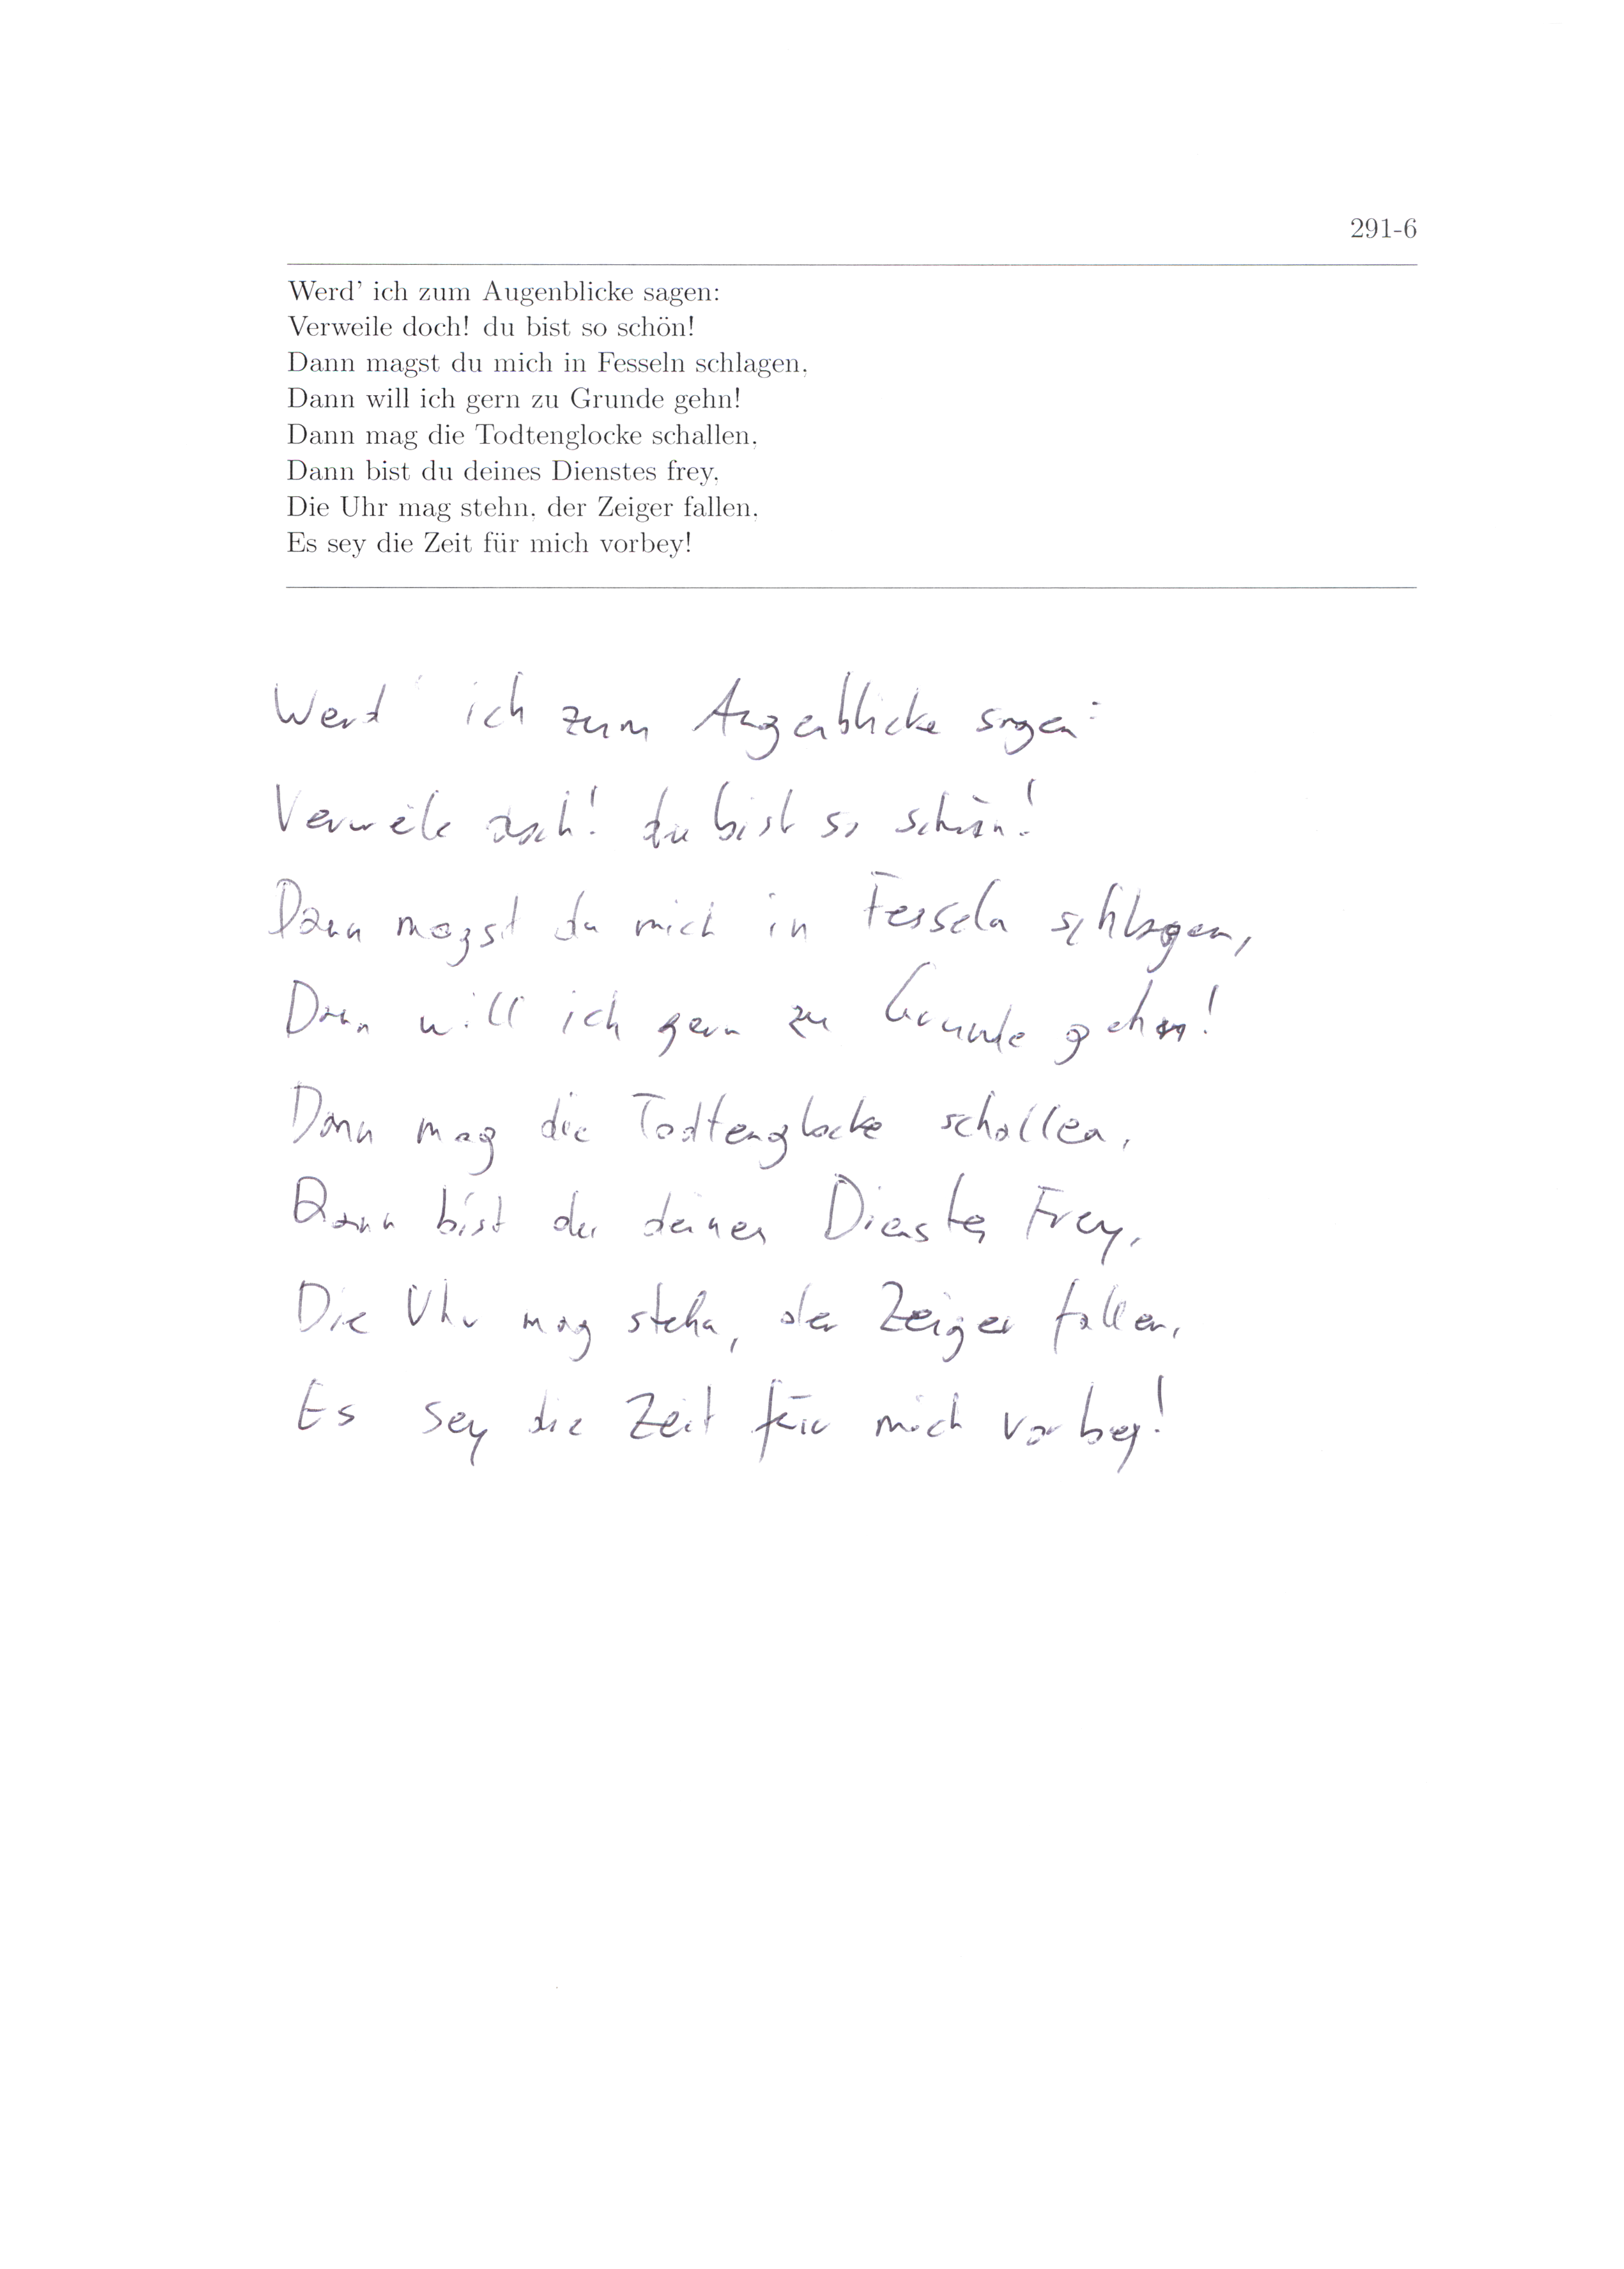 291-6
Werd' ich zum Augenblicke sagen:
Verweile doch! du bist so schön!
Dann magst du mich in Fesseln schlagen,
Dann will ich gern zu Grunde gehn!
Dann mag die Todtenglocke schallen,
Dann bist du deines Dienstes frey,
Die Uhr mag stehn, der Zeiger fallen,
Es sey die Zeit für mich vorbey!
Werd' ich zum Augenblicke sagen:
Verweile doch! du bist so schön!
Dann magst du mich in Fesseln schlagen,
Dann will ich gern zu Grunde gehn!
Dann mag die Todtenglocke schallen,
Dann bist du deines Dienstes Frey,
Die Uhr mag stehn, der Zeiger fallen,
Es sey die Zeit für mich vorbey!